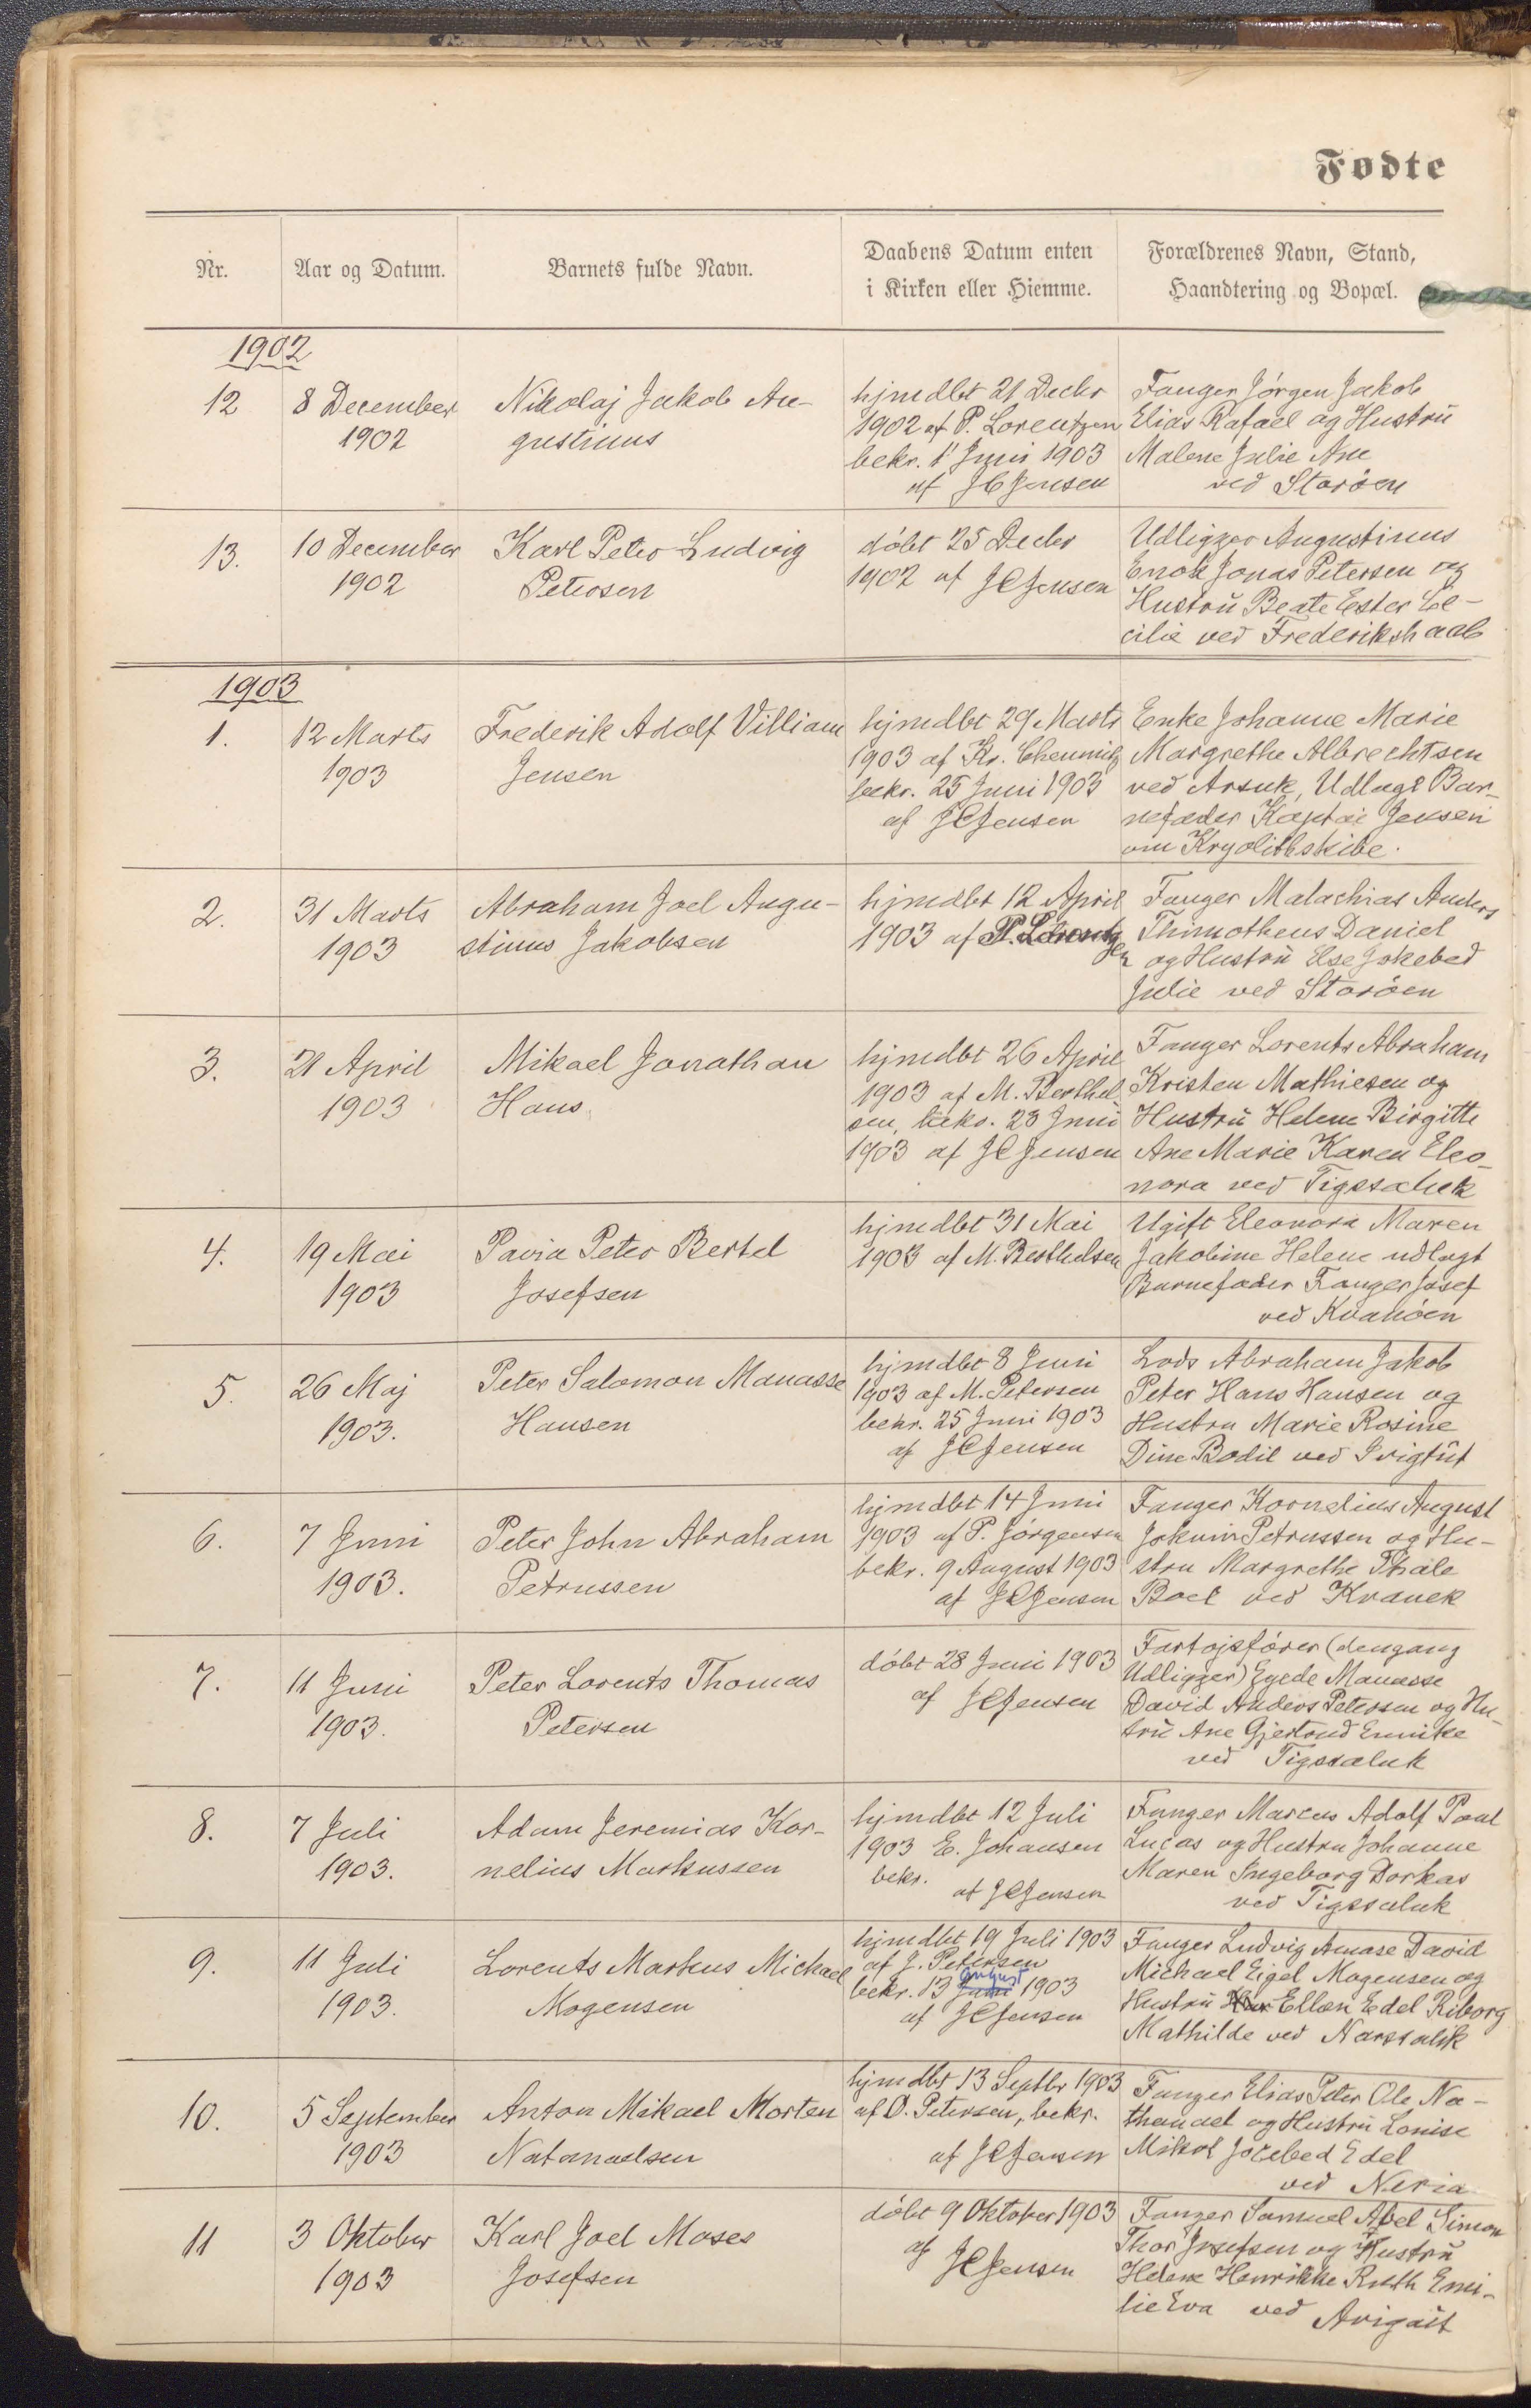 Fødte
Nr.
Aar og Datum.
Barnets fulde Navn.
Daabens Datum enten
i Kirken eller Hiemme.
Forældrenes Navn, Stand,
Haandtering og Bopæl.
1902
12
8 December
1902
Nikolaj Jakob Au-
gustinus
hjmdbt 21 Decbr
1902 af P. Lorentzen
bekr. 1' Juni 1903
af JCJensen
Fanger Jørgen Jakob
Elias Rafael og Hustrü
Malene Julie Ane
ved Storøen
13.
10 December
1902
Karl Peter Ludvig
Petersen
døbt 25 Decbr
1902 af JCJensen
Udligger Augustinus
Enok Jonas Petersen og
Hustrü Beate Ester Ce-
cilie ved Frederikshaab
1903
1.
12 Marts
1903
Frederik Adolf Villiam
Jensen
hjmdbt 29 Marts
1903 af Kr. Chemnitz
bekr. 25 Juni 1903
af JCJensen
Enke Johanne Marie
Margrethe Albrechtsen
ved Arsuk, Udlagt Bar-
nefader Kaptai Jensen
om Kryolithskibe.
2.
31 Marts
1903
Abraham Joel Augu-
stinus Jakobsen
hjmdbt 12 April
1903 af P. Lorentz
sen
Fanger Malachias Anders
Thimotheus Daniel
og Hustrü Else Jokebed
Julie ved Storøen
3.
21 April
1903
Mikael Jonathan
Hans
hjmdbt 26 April
1903 af M. Berthel
sen, bekr. 23 Juni
1903 af JCJensen
Fanger Lorents Abraham
Kristen Mathiesen og
Hustrü Helene Birgitte
Ane Marie Karen Eleo-
nora ved Tigssaluk
4.
19 Mai
1903
Pavia Peter Bertel
Josefsen
hjmdbt 31 Mai
1903 af M. Berthelsen
Ugift Eleonora Maren
Jakobine Helene udlagt
Barnefader Fanger Josef
ved Kvanøen
5.
26 Maj
1903.
Peter Salomon Manasse
Hansen
hjmdbt 8 Juni
1903 af M. Petersen
bekr. 25 Juni 1903
af JCJensen
Lods Abraham Jakob
Peter Hans Hansen og
Hustru Marie Rosine
Dine Bodil ved Ivigtüt
6.
7 Juni
1903.
Peter John Abraham
Petrussen
hjmdbt 14 Juni
1903 af P. Jørgensen
bekr. 9 August 1903
af JCJensen
Fanger Kornelius August
Jokum Petrussen og Hu-
stru Margrethe Thale
Boel ved Kvanek
7.
11 Juni
1903.
Peter Lorents Thomas
Petersen
døbt 28 Juni 1903
af JCJensen
Fartøjsfører (dengang
Udligger) Egede Manasse
David Anders Petersen og Hu-
trü Ane Gjertrud Ennike
ved Tigssaluk
8.
7 Juli
1903.
Adam Jeremias Kor-
nelius Markussen
hjmdbt 12 Juli
1903 E. Johansen
bekr.
af JCJensen
Fanger Marcus Adolf Paul
Lucas og Hustru Johanne
Maren Ingeborg Dorkas
ved Tigssaluk
9.
11 Juli
1903.
Lorents Markus Michael
Mogensen
hjmdbt 19 Juli 1903
af J. Petersen
august
bekr. 13 Juni 1903
af JCJensen
Fanger Ludvig Amase David
Michael Eigel Mogensen og
Hustrü Ellen Edel Riborg
Mathilde ved Narssalik
10.
5 September
1903
Anton Mikael Morten
Natanaelsen
hjmdbt 13 Septbr 1903
af O. Petersen, bekr.
af JCJensen
Fanger Elias Peter Ole Na-
thanael og Hustrü Lonise
Mikal Jocebed Edel
ved Neria
11
3 Oktober
1903
Karl Joel Moses
Josefsen
døbt 9 Oktober 1903
af
JCJensen
Fanger Samuel Abel Simon
Thor Josefsen og Hustrü
Helene Henrikke Ruth Emi-
lie Eva ved Avigait